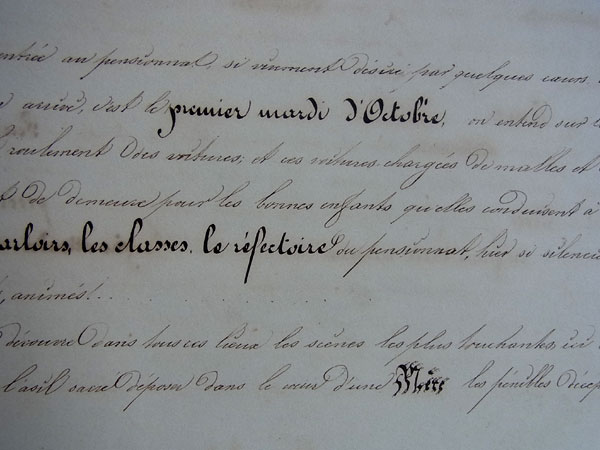 entrée au pensionnat, si vivement désiré par quelques cœurs
arrivé, c'est le premier mardi d'Octobre, on entend sur
roulement des voitures; et ces voitures chargées de malles et
de demeure pour les bonnes enfants qu'elles conduisent à
arloirs, les classes, le réfectoire du pensionnat, hier si silencie
, animés!. . . . . . . . . . .
découvre dans tous ces lieux les scènes les plus touchantes, ici
l'asil sacré déposer dans le cœur d'une Mère les pénibles décep